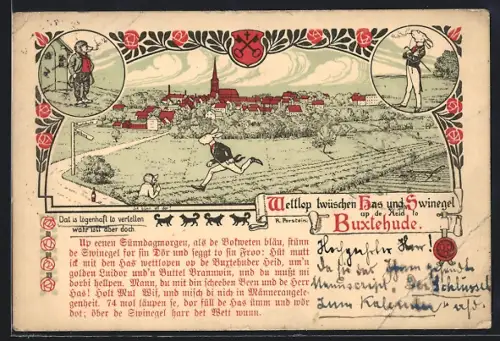 Wettlop twüschen Has und Swinegel
up de Heid to
Buxtehude.
R. Perstein.
Dat is lögenhaft to vertellen
wahr iß't aber doch.
Up eenen Sünndagmorgen, als de Bokweten bläu, stünn
de Swinegel for sin Dör und seggt to sin Froo: Hüt mutt
ick mit den Has wettlopen up de Buxtehuder Heid, um'n
golden Luidor und'n Buttel Brannwin, und du mußt mi
dorbi helpen. Mann, du mit din scheeben Been und de Herr
Has! Holt Mul Wif, und misch di nich in Männerangele-
genheit. 74 mol läupen se, dor füll de Has ümm und wör
dot; över de Swinegel harr det Wett wunn.
Hochgeehrter Herr!
Manuscript: Der Schlüssel
zum Kalender